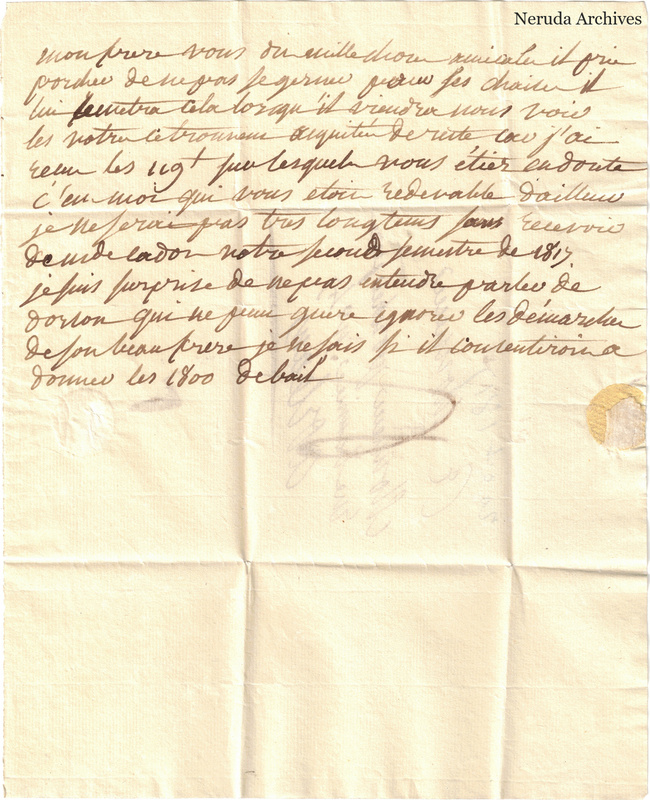 Neruda Archives
mon frere vous dit mille chose amicales il prie
de ne pas se gener pour ses chaises il
lui remetra cela lorsqu'il viendra nous voir
les votre ce trouvent aquitées de suite car j'ai
recu les 119t sur lesquels vous étiez en doute
c'en moi qui vous etoit redevable d'ailleur
je ne serai pas tres longtems sans recevoir
de notre second semestre de 1817
je suis surprise de ne pas entendre parler de
dorson qui ne peau guere ignorer les démarches
de son beau frere je ne sais si il consentiroit a
donner les 1800 de bail